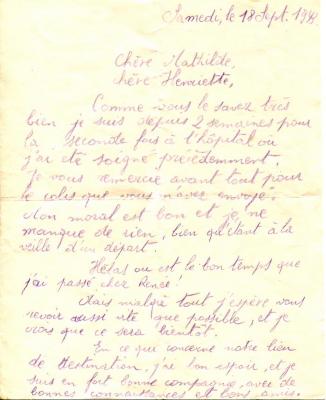 Samedi, le 18 Sept. 1943.
Chère Mathilde,
chère Henriette,
Comme vous le savez très
bien je suis depuis 2 semaines pour
la seconde fois à l'hôpital où
j'ai été soigné precédemment.
Je vous remercie avant tout pour
le colis que vous m'avez envoyé.
Mon moral est bon et je ne
manque de rien, bien qu'étant à la
veille d'un départ.
Hélas ou est le bon temps que
j'ai passé chez René!
Mais malgré tout j'espère vous
revoir aussi vite que possible, et je
crois que ce sera bientôt.
En ce qui concerne notre lieu
de destination, j'ai bon espoir, et je
suis en fort bonne compagnie, avec de
bonnes connaissances et bons amis.